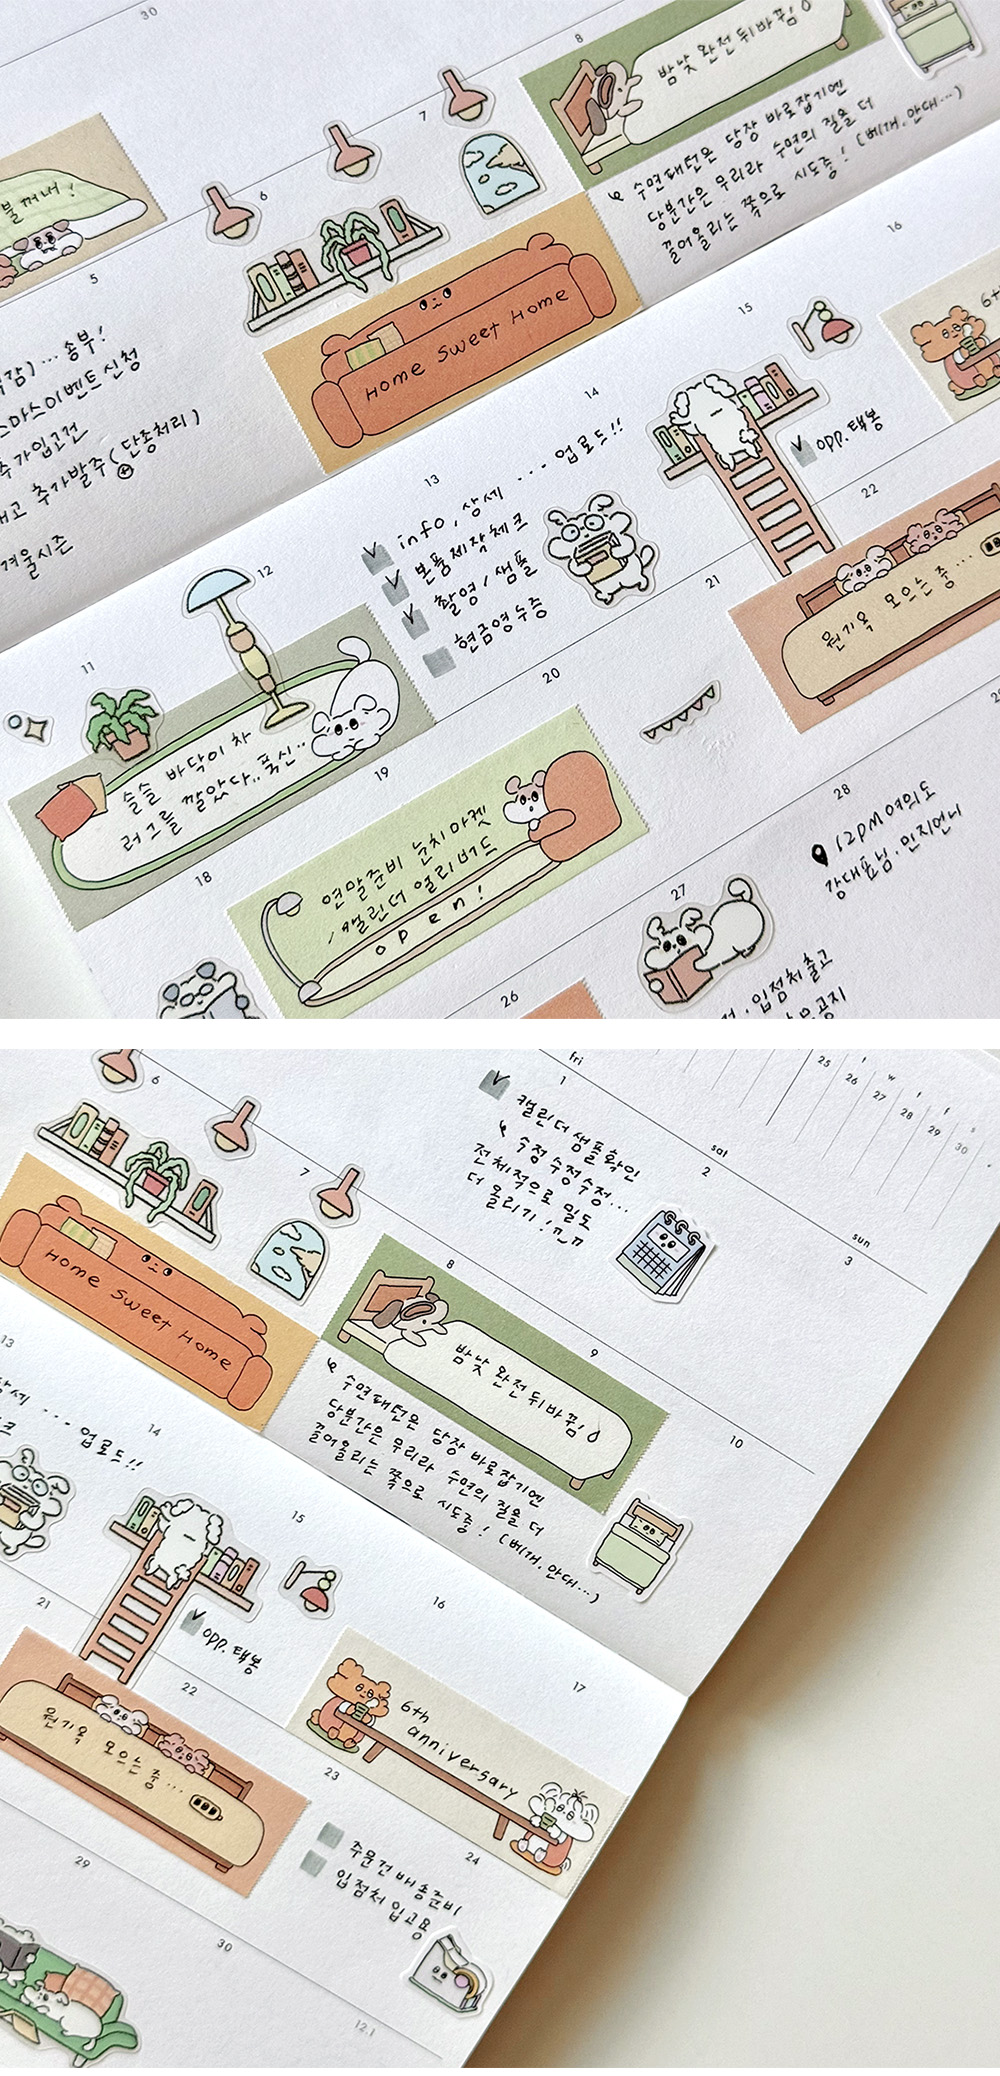 30
8
밤낮 완전 뒤바뀜!
수면패턴은 당장 바로잡기엔
당분간은 무리라 수면의 질을 더
끌어올리는 쪽으로 시도중! (베개, 안대...)
7
6
꺼내!
5
... 송부!
이벤트 신청
추가입고건
추가발주 (단종처리)
겨울시즌
Home Sweet Home
16
15
6th
14
opp. 택봉
13
info, 상세 ... 업로드!!
본품제작체크
촬영 / 샘플
현금영수증
22
원기옥 모으는 중...
21
12
11
슬슬 바닥이 차
러그를 깔았다.. 푹신..
20
19
연말준비 눈치마켓
캘린더 얼리버드
open!
18
28
12PM 여의도
강대표님. 민지언니
27
입점처 출고
공지
26
fri
1
캘린더 샘플확인
수정수정수정...
전체적으로 밀도
더 올리기!ㅠ_ㅠ
sat
2
sun
3
25 26 27 28 29 30
w f f s
6
7
8
밤낮 완전 뒤바뀜!
9
10
Home Sweet Home
수면패턴은 당장 바로잡기엔
당분간은 무리라 수면의 질을 더
끌어올리는 쪽으로 시도중! (베개, 안대...)
13
상세 ... 업로드!!
14
15
opp. 택봉
16
17
21
22
원기옥 모으는 중...
6th
anniversary
23
24
주문건 배송준비
입점처 입고용
29
30
12.1